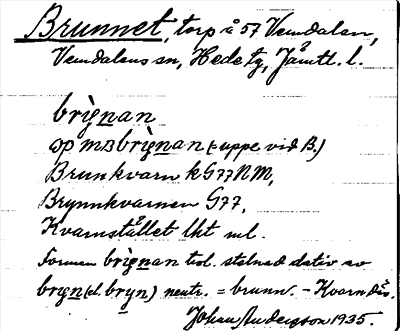 Brunnet, torp å 57 Vemdalen,
Vemdalens sn, Hede tg, Jämtl. l.
brignan
op mB brignan (= uppe vid B.)
Brunkvarn kG77NM,
Brynnkvarnen G77,
Kvarnstället lht ml.
Formen brignan trol. stelnad dativ av
bryn (el. bryn) neutr. = brunn. - Kvarn
Johan Anderson 1935